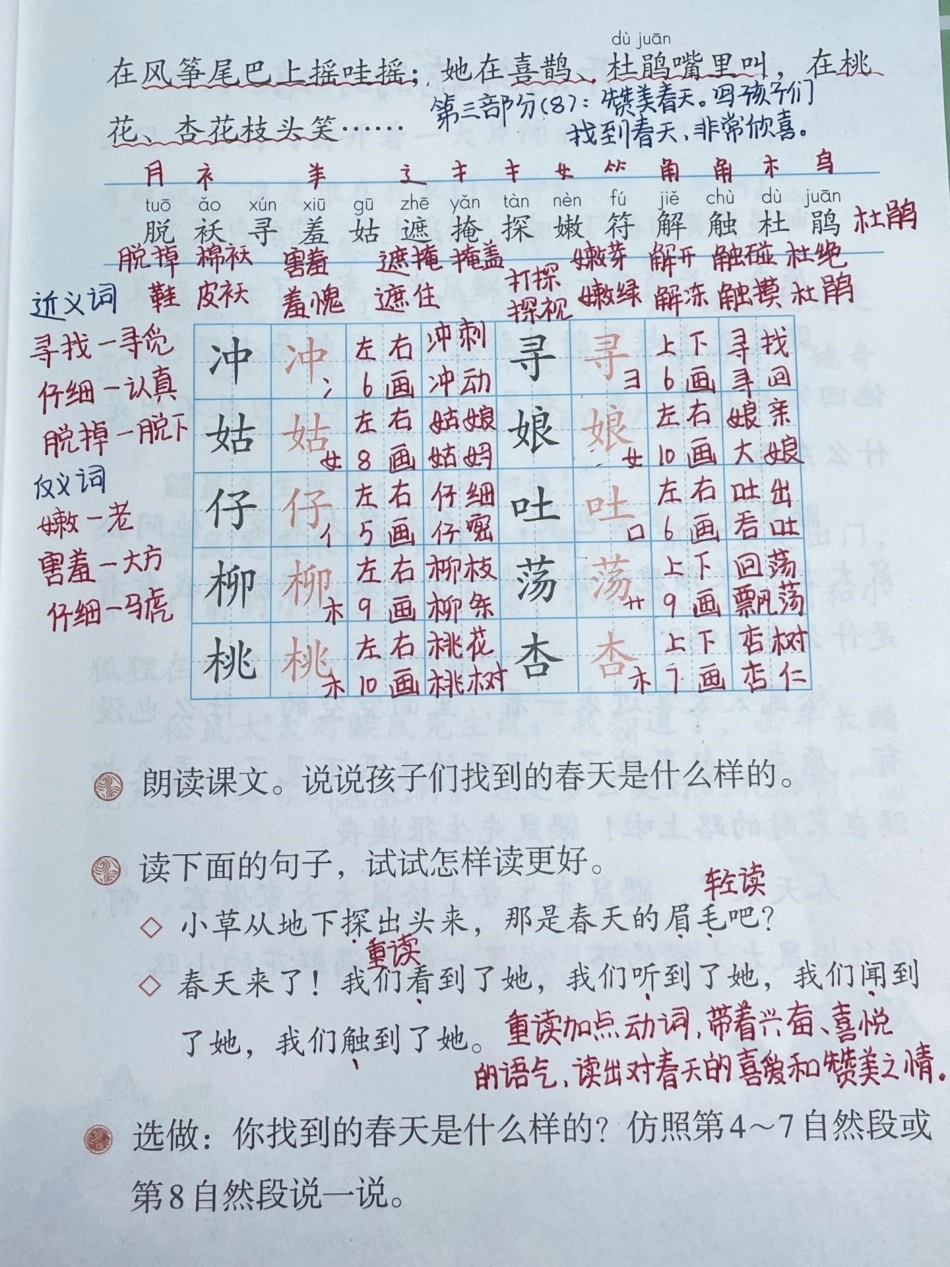 dù juān
在风筝尾巴上摇哇摇；她在喜鹊、杜鹃嘴里叫，在桃
花、杏花枝头笑……
第三部分(8)：赞美春天。写孩子们
找到春天，非常欣喜。
月 衤 羊 辶 扌 扌 女 𥫗 角 角 木 鸟
tuō ǎo xún xiū gū zhē yǎn tàn nèn fú jiě chù dù juān
脱 袄 寻 羞 姑 遮 掩 探 嫩 符 解 触 杜 鹃 杜鹃
脱掉 棉袄 害羞 遮掩 掩盖 打探 嫩芽 解开 触碰 杜绝
鞋 皮袄 羞愧 遮住 探视 嫩绿 解冻 触摸 杜鹃
近义词
寻找—寻觅
仔细—认真
脱掉—脱下
反义词
嫩—老
害羞—大方
仔细—马虎
冲 冲 左右 冲刺 寻 寻 上下 寻找
冫 6画 冲动 彐 6画 寻回
姑 姑 左右 姑娘 娘 娘 左右 娘亲
女 8画 姑妈 女 10画 大娘
仔 仔 左右 仔细 吐 吐 左右 吐出
亻 5画 仔密 口 6画 吞吐
柳 柳 左右 柳枝 荡 荡 上下 回荡
木 9画 柳条 艹 9画 飘荡
桃 桃 左右 桃花 杏 杏 上下 杏树
木 10画 桃树 木 7画 杏仁
朗读课文。说说孩子们找到的春天是什么样的。
读下面的句子，试试怎样读更好。
轻读
◇ 小草从地下探出头来，那是春天的眉毛吧？
重读
◇ 春天来了！我们看到了她，我们听到了她，我们闻到
了她，我们触到了她。
重读加点动词，带着兴奋、喜悦
的语气，读出对春天的喜爱和赞美之情。
选做：你找到的春天是什么样的？仿照第4～7自然段或
第8自然段说一说。